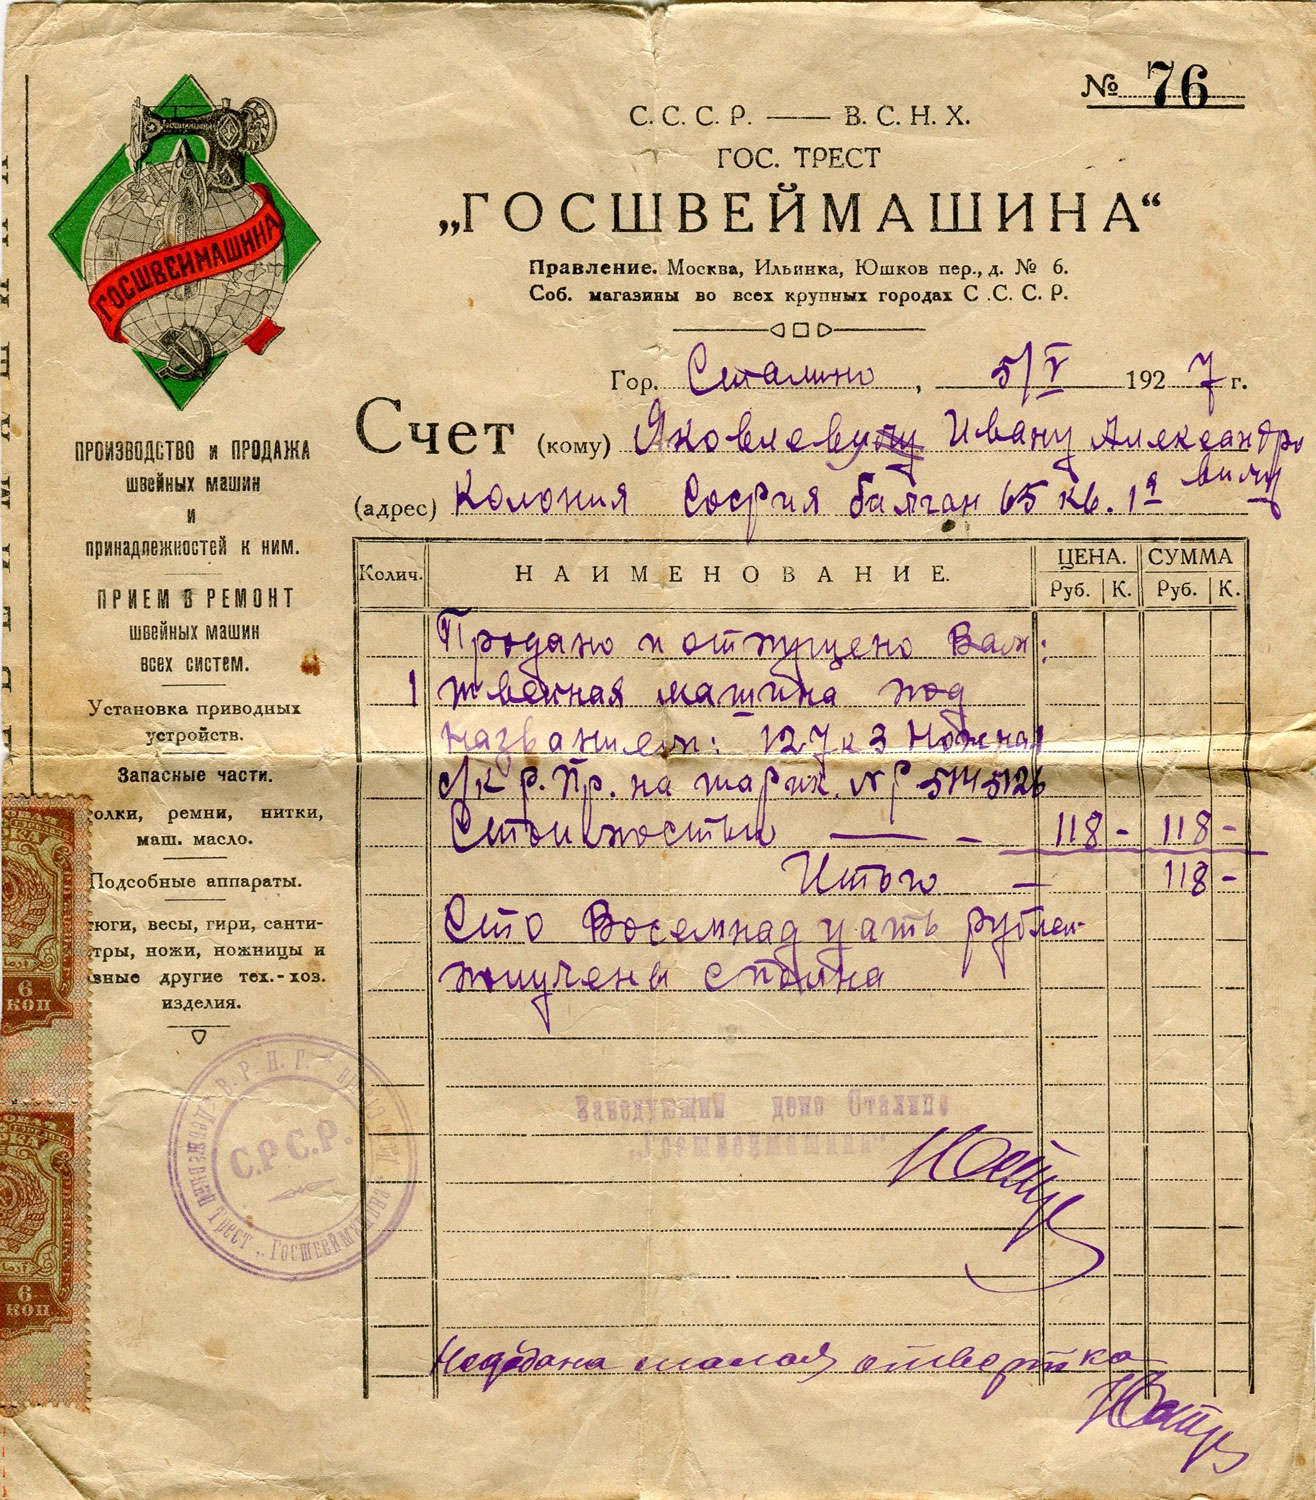 № 76
С. С. С. Р. — В. С. Н. Х.
ГОС. ТРЕСТ
„ГОСШВЕЙМАШИНА“
Правление. Москва, Ильинка, Юшков пер., д. № 6.
Соб. магазины во всех крупных городах С .С. С. Р.
ГОСШВЕЙМАШИНА
Гор. Сталино, 5/V 1927 г.
Счет (кому) Яковлеву Ивану Александро
вичу
(адрес) Колония София балган 65 кв. 1а
ПРОИЗВОДСТВО и ПРОДАЖА
швейных машин
и
принадлежностей к ним.
ПРИЕМ В РЕМОНТ
швейных машин
всех систем.
Установка приводных
устройств.
Запасные части.
олки, ремни, нитки,
маш. масло.
Подсобные аппараты.
тюги, весы, гири, санти-
тры, ножи, ножницы и
вные другие тех.-хоз.
изделия.
Колич. НАИМЕНОВАНИЕ. ЦЕНА. СУММА
Руб. К. Руб. К.
Продано и отпущено Вам:
1 швейная машина под
названием: 127 к 3 Ножная
с/к р. Пр. на шарик. №
Стоимостью — - 118 - 118 -
Итого — 118 -
Сто Восемнадцать рублей
получены сполна
Заведующий депо Сталино
„Госшвеймашина“
С.Р.С.Р.
В.Р.Н.Г.
Державний Трест „Госшвеймашина“
Недодана малая отвертка
6
КОП
6
КОП